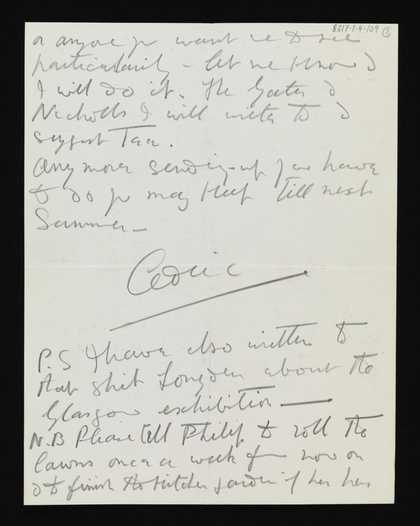 8317.1.4.109 B
or anyone you want me to see
particularly – let me know &
I will do it. The Gates &
Nicholls I will write to &
suggest Tea.
Any more sending-up you have
to do you may keep till next
Summer –
Cedric
P.S I have also written to
that shit Longden about the
Glasgow exhibition —
N.B Please tell Philip to roll the
lawns once a week from now on
& to finish the kitchen garden if he has